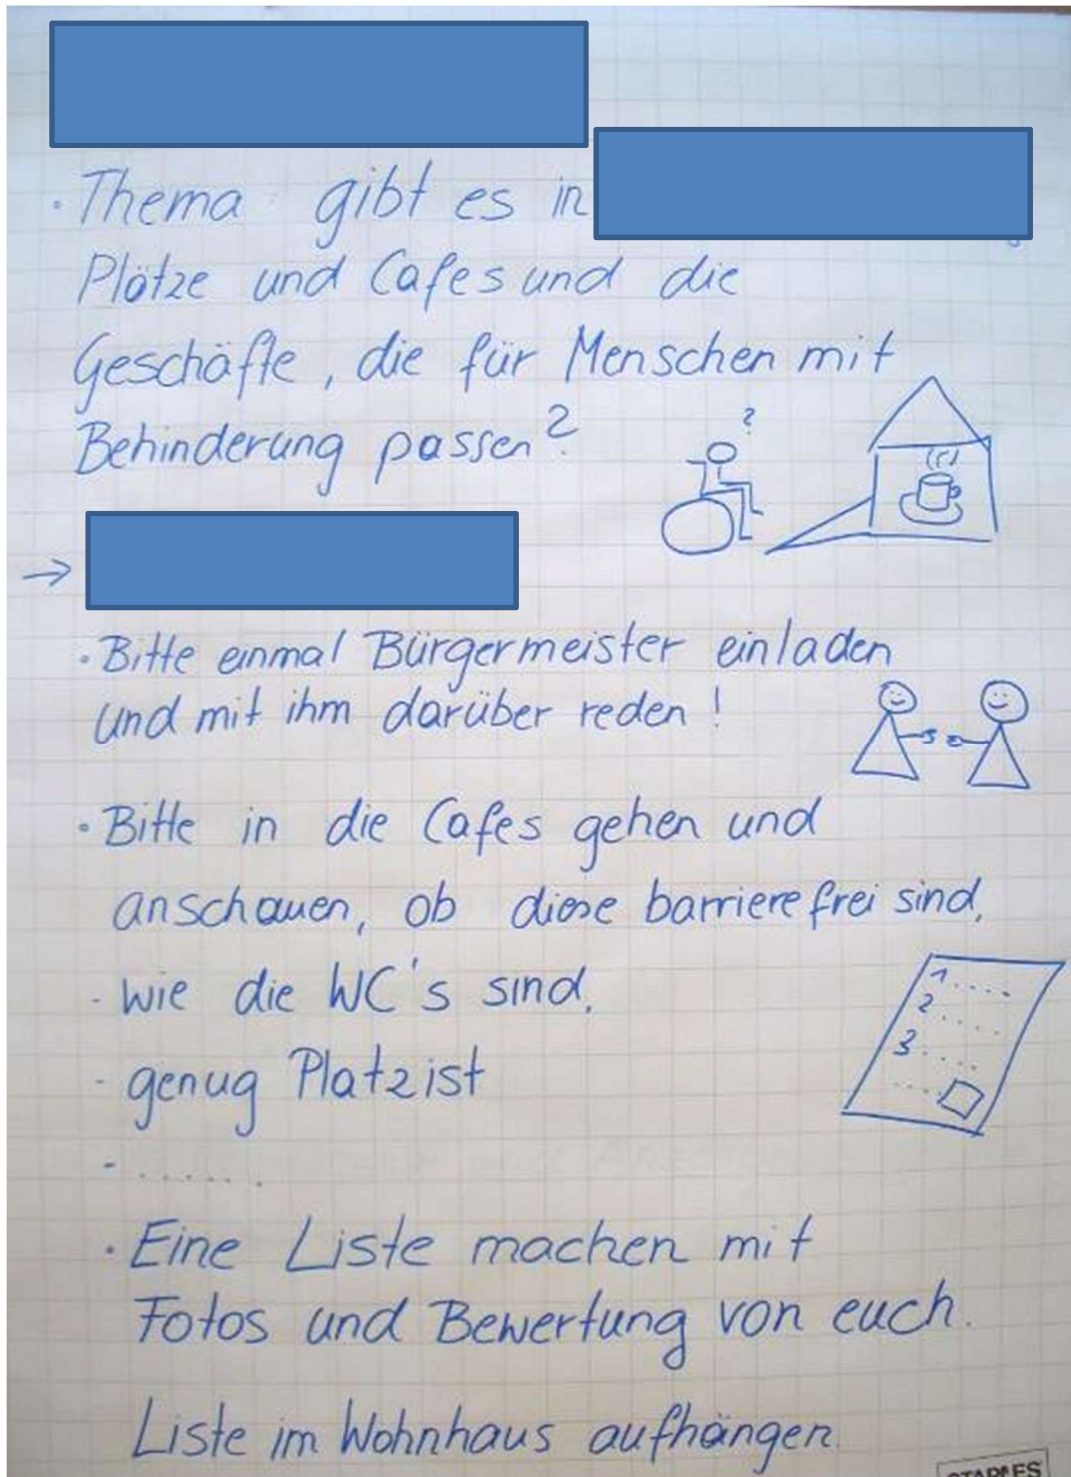 · Thema gibt es in
Plätze und Cafes und die
Geschäfte, die für Menschen mit
Behinderung passen?
?
→
· Bitte einmal Bürgermeister einladen
und mit ihm darüber reden!
· Bitte in die Cafes gehen und
anschauen, ob diese barrierefrei sind,
- wie die WC's sind,
1.....
2.....
3.....
.....
- genug Platz ist
- ......
· Eine Liste machen mit
Fotos und Bewertung von euch.
Liste im Wohnhaus aufhängen
STAPLES